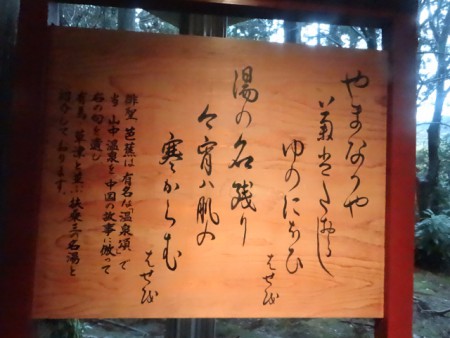 やまなかや
菊はたおらじ
ゆのにほひ
はせを
湯の名残り
今宵ハ肌の
寒からむ
はせを
俳聖 芭蕉は 有名な「温泉頌」で
当 山中温泉を中国の故事に倣って
右の句を遺し
有馬、草津と並ぶ 扶桑三の名湯と
紹介しております。